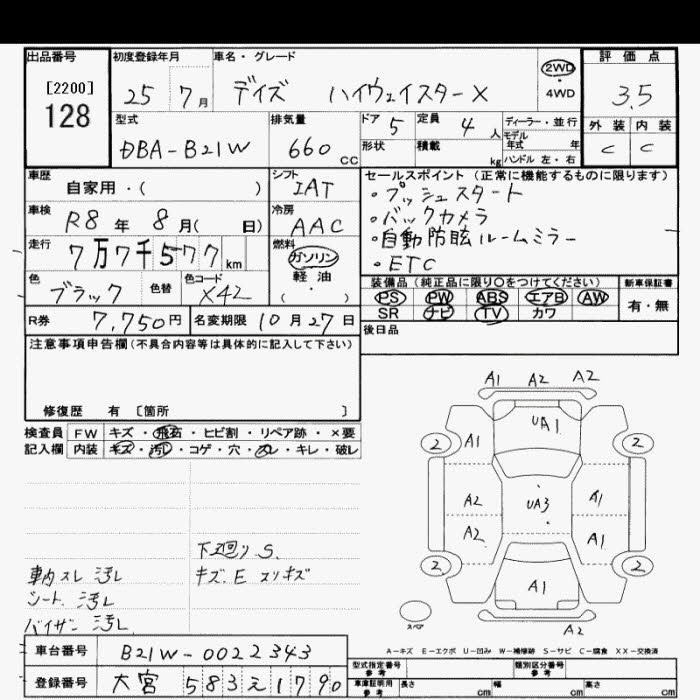 出品番号 初度登録年月 車名・グレード 評価点
[2200]
128
25 7月 デイズ ハイウェイスターX 2WD・4WD 3.5
型式 排気量 ドア 5 定員 4人 ディーラー・並行 外装 内装
DBA-B21W 660cc 形状 積載 kg モデル年式 年 C C
ハンドル 左・右
車歴 シフト セールスポイント (正常に機能するものに限ります)
自家用・( ) IAT ・プッシュスタート
車検 R8年 8月( 日) 冷房 AAC ・バックカメラ
走行 7万7千577km 燃料 ・自動防眩ルームミラー
ガソリン・軽・油・( ) ・ETC
色 ブラック 色替 色コード X42
装備品 (純正品に限り○をつけてください) 新車保証書
PS PW ABS エアB AW 有・無
SR ナビ TV カワ
R券 7,750円 名変期限 10月27日
後日品
注意事項申告欄(不具合内容等は具体的に記入して下さい)
修復歴 有 [箇所 ]
検査員 FW キズ・飛石・ヒビ割・リペア跡・×要
記入欄 内装 キズ・汚れ・コゲ・穴・スレ・キレ・破レ
A1 A2 A2
UA1
2 A1 2
A2 UA3 A1
A2 A1
2 A1 2
スペア
A2
下廻り S.
車内スレ 汚レ キズ.E スリキズ
シート 汚レ
バイザー 汚レ
A-キズ E-エクボ U-凹み W-補修跡 S-サビ C-腐食 XX-交換済
車台番号 B21W-0022343
登録番号 大宮 583 え 1790
型式指定番号 参考 類別区分番号 参考
車庫証明用 参考 長さ cm 幅 cm 高さ cm